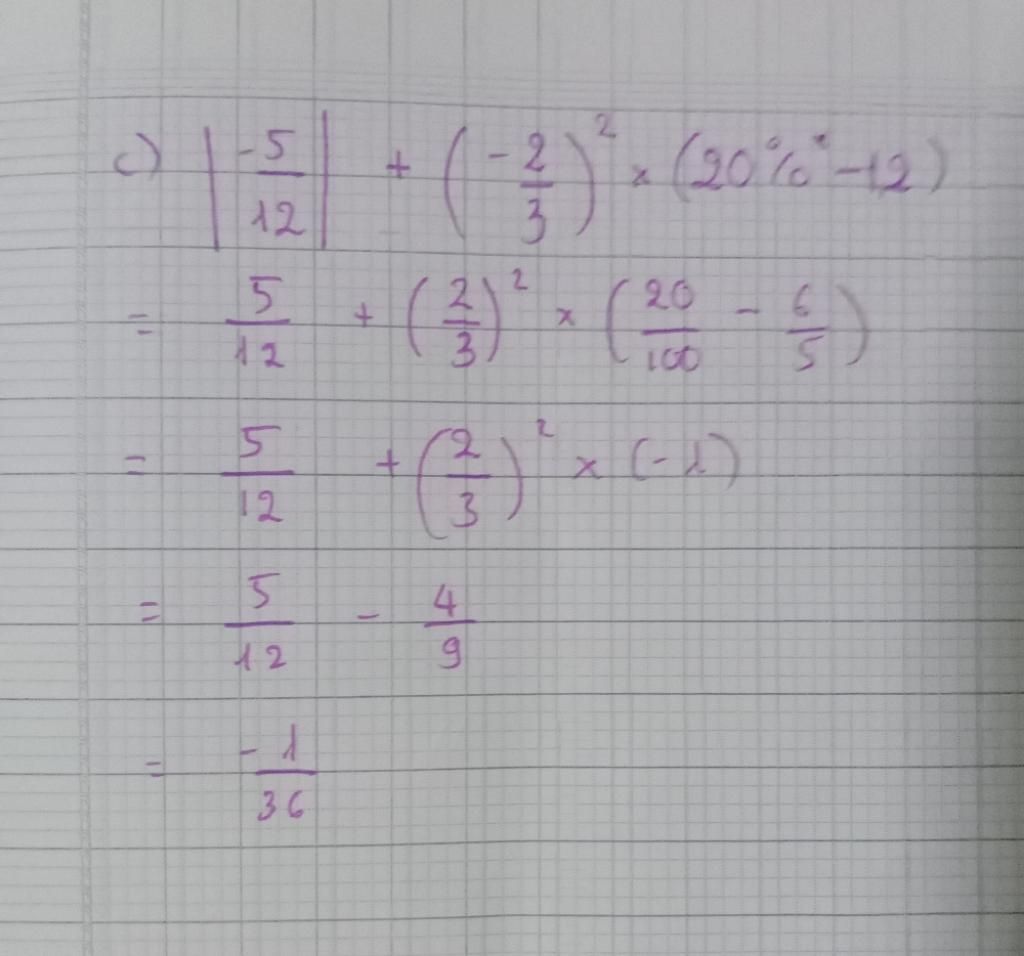 c) |-5/12| + (-2/3)² × (20% - 12)
= 5/12 + (2/3)² × (20/100 - 6/5)
= 5/12 + (2/3)² × (-1)
= 5/12 - 4/9
= -1/36